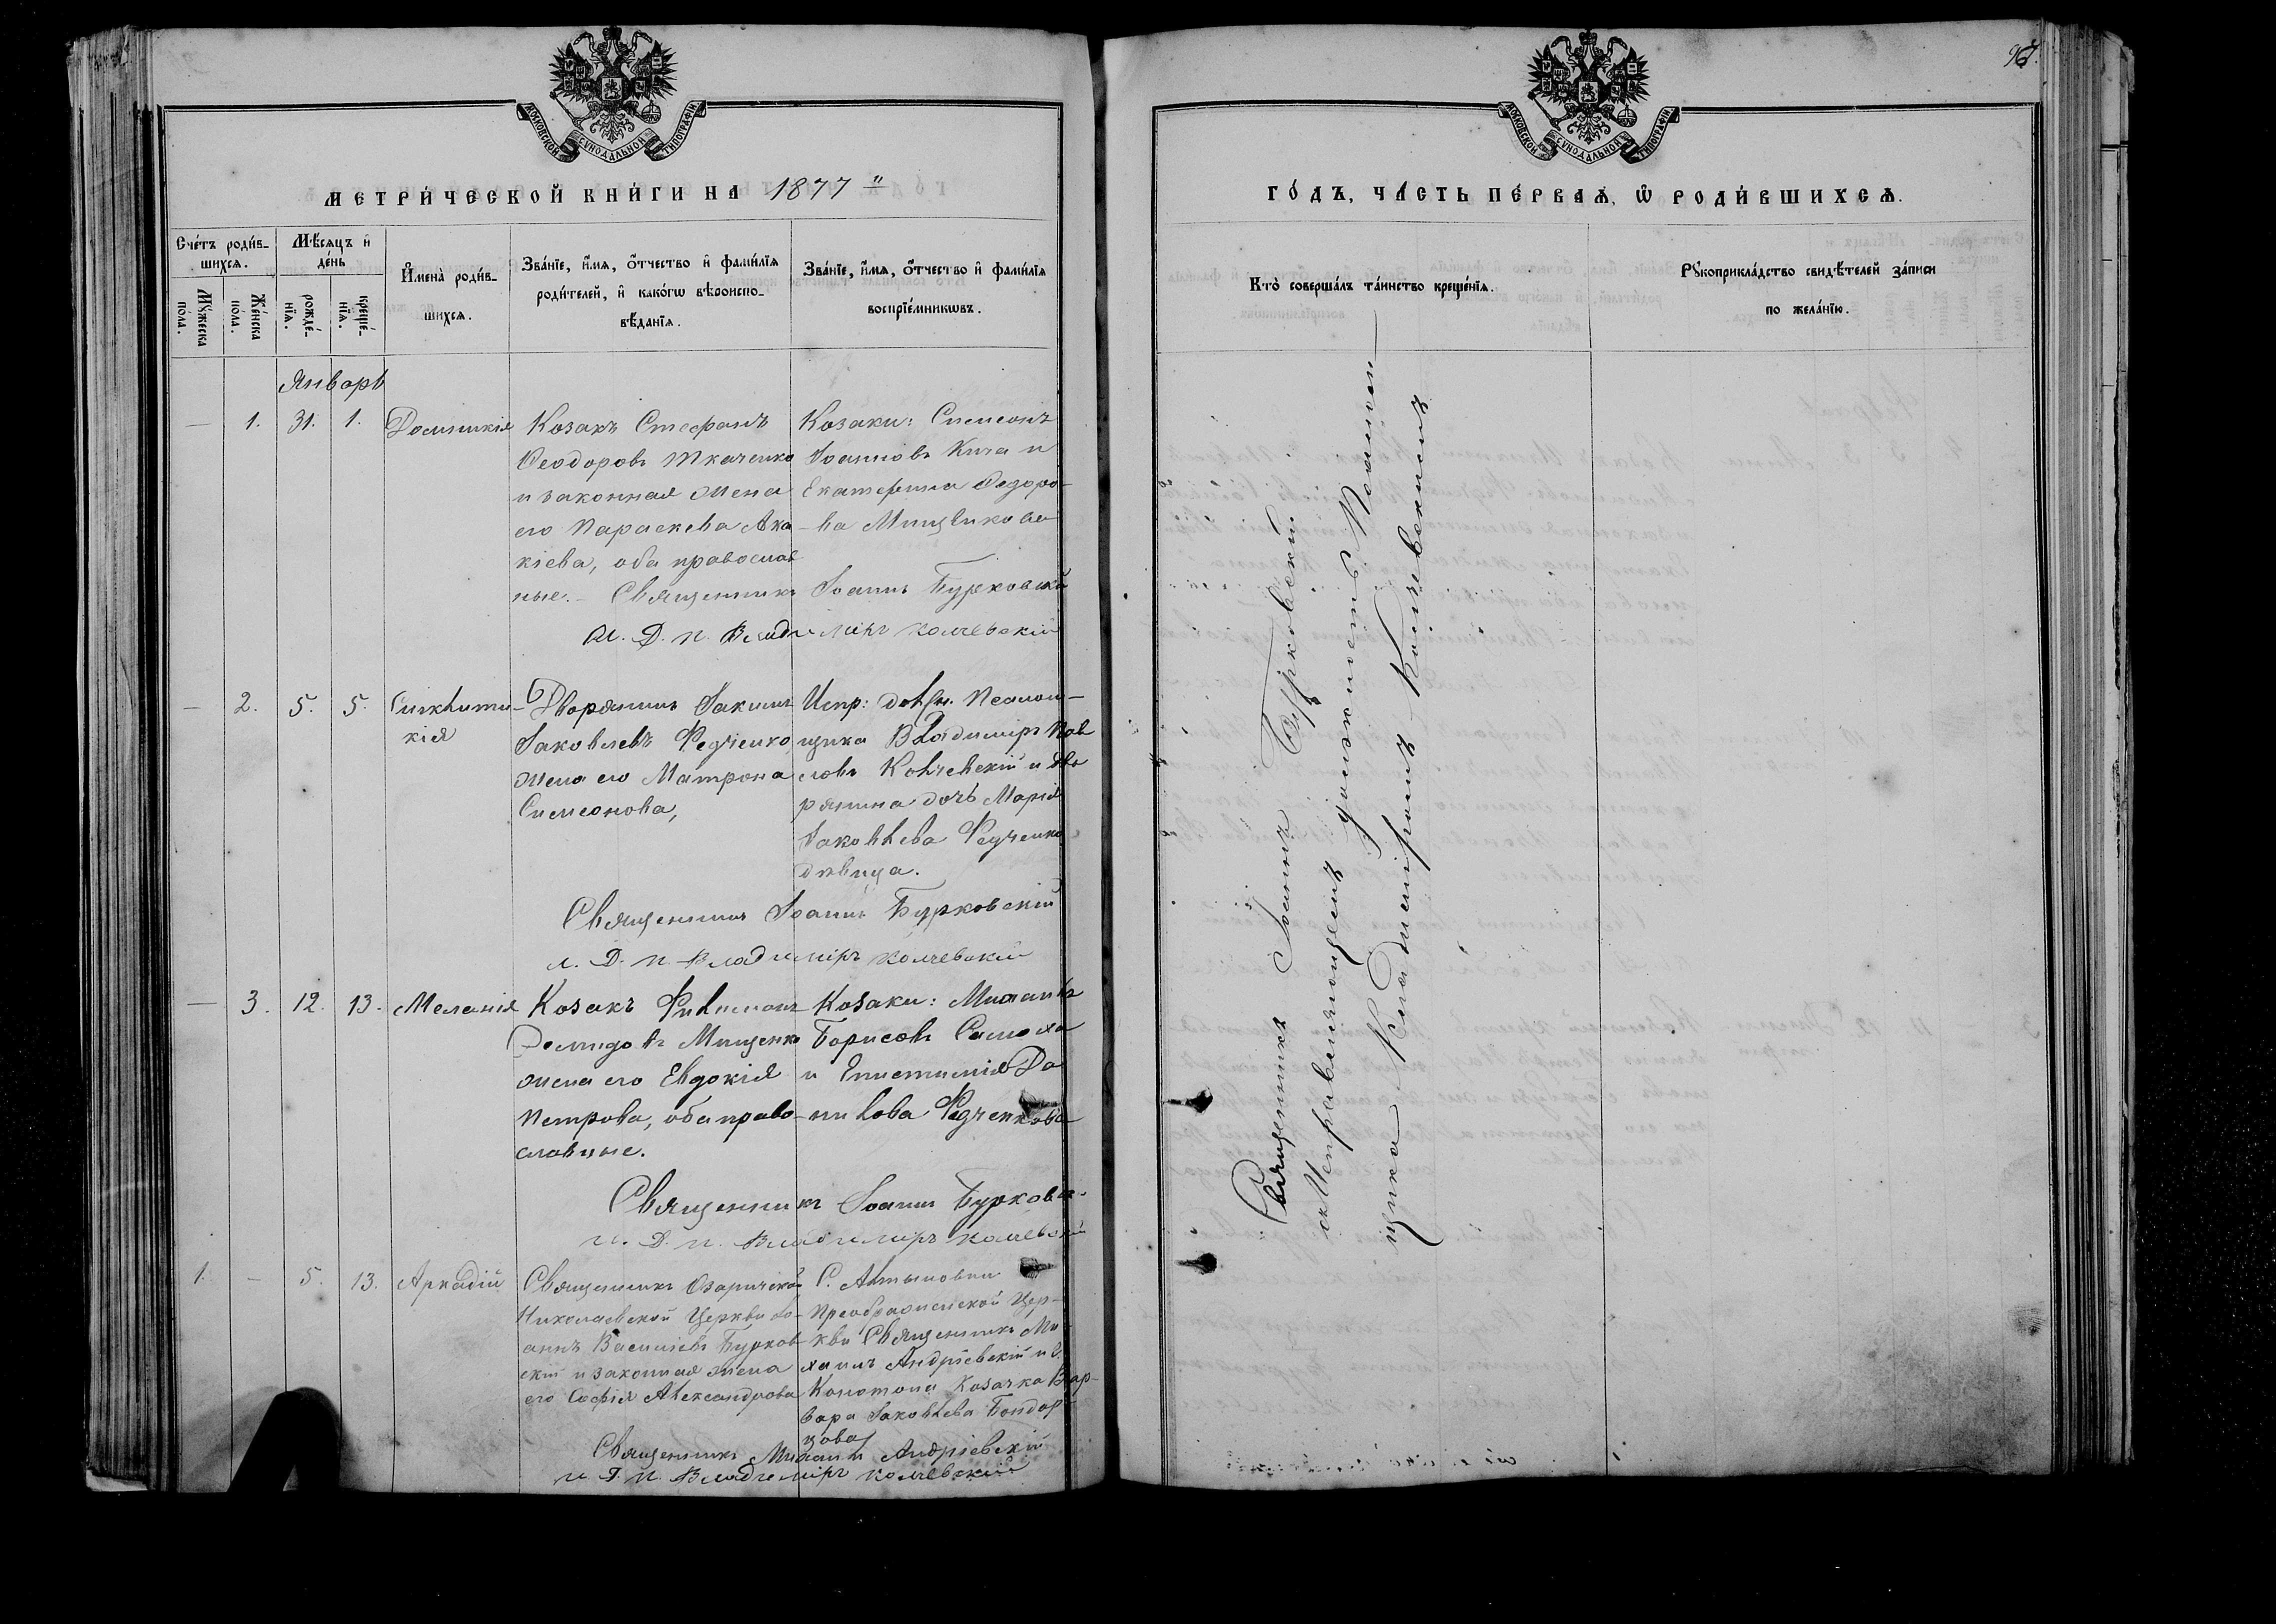 МОСКОВСКОЙ СѴНОДАЛЬНОЙ ТИПОГРАФІИ
МЕТРИ́ЧЕСКОЙ КНИ́ГИ НА 1877
Сче́тъ роди́в-
шихсѧ.
Мѣ́сѧцъ и҆
де́нь
И҆мена̀ роди́в-
шихсѧ.
Зва́нїе, и҆́мѧ, ѻ҆́тчество и҆ фами́лїѧ
роди́телей, и҆ како́гѡ вѣроиспо-
вѣ́данїѧ.
Зва́нїе, и҆́мѧ, ѻ҆́тчество и҆ фами́лїѧ
воспрїе́мникѡвъ.
Мꙋ́жеска
по́ла.
Же́нска
по́ла.
рожде́-
нїѧ.
креще́-
нїѧ.
Январь
— 1. 31. 1. Домникія
Козакъ Стефанъ
Ѳеодоровъ Ткаченко
и законная жена
его Параскева Ака-
кіева, оба православ
ные.
Козаки: Симеонъ
Іоанновъ Кича и
Екатерина Федоро-
ва
Священникъ Іоаннъ Бурковскій
И. Д. П. Владиміръ Колчевскій
— 2. 5. 5. Синклити-
кія
Дворянинъ Іакимъ
Іаковлевъ Федченко
жена его Матрона
Симеонова,
Испр: долж. Псалом-
щика Владиміръ Пав
ловъ Колчевскій и Дво
рянина дочь Марія
Іаковлева Федченко
дѣвица.
Священникъ Іоаннъ Бурковскій
И. Д. П. Владиміръ Колчевскій
— 3. 12. 13. Меланія
Козакъ Филимонъ
Демидовъ Мищенко
жена его Евдокія
Петрова, оба право-
славные.
Козаки: Михаилъ
Борисовъ Самоха
и Епистимія Да
нилова Федченкова
Священникъ Іоаннъ Бурковск
И. Д. П. Владиміръ Колчевскій
1. — 5. 13. Аркадій
Священникъ Озаричской
Николаевской Церкви Іо-
аннъ Васильевъ Бурков
скій и законная жена
его Софія Александрова
С. Алтыновки
Преображенской Цер-
кви Священникъ Ми
хаилъ Андріевскій и г.
Конотопа Козачка Вар-
вара Іаковлева Бондар
цова
Священникъ Михаилъ Андріевскій
И. Д. П. Владиміръ Колчевскій
97.
МОСКОВСКОЙ СѴНОДАЛЬНОЙ ТИПОГРАФІИ
ГО́ДЪ, ЧА́СТЬ ПЕ́РВАѦ, Ѡ҆ РОДИ́ВШИХСѦ.
Кто̀ соверша́лъ та́инство креще́нїѧ.
Рꙋкоприкла́дство свидѣ́телей за́писи
по жела́нїю.
Священникъ Іоаннъ Бурковскій.
съ Исправляющемъ должность Псалом-
щика Владиміромъ Колчевскимъ